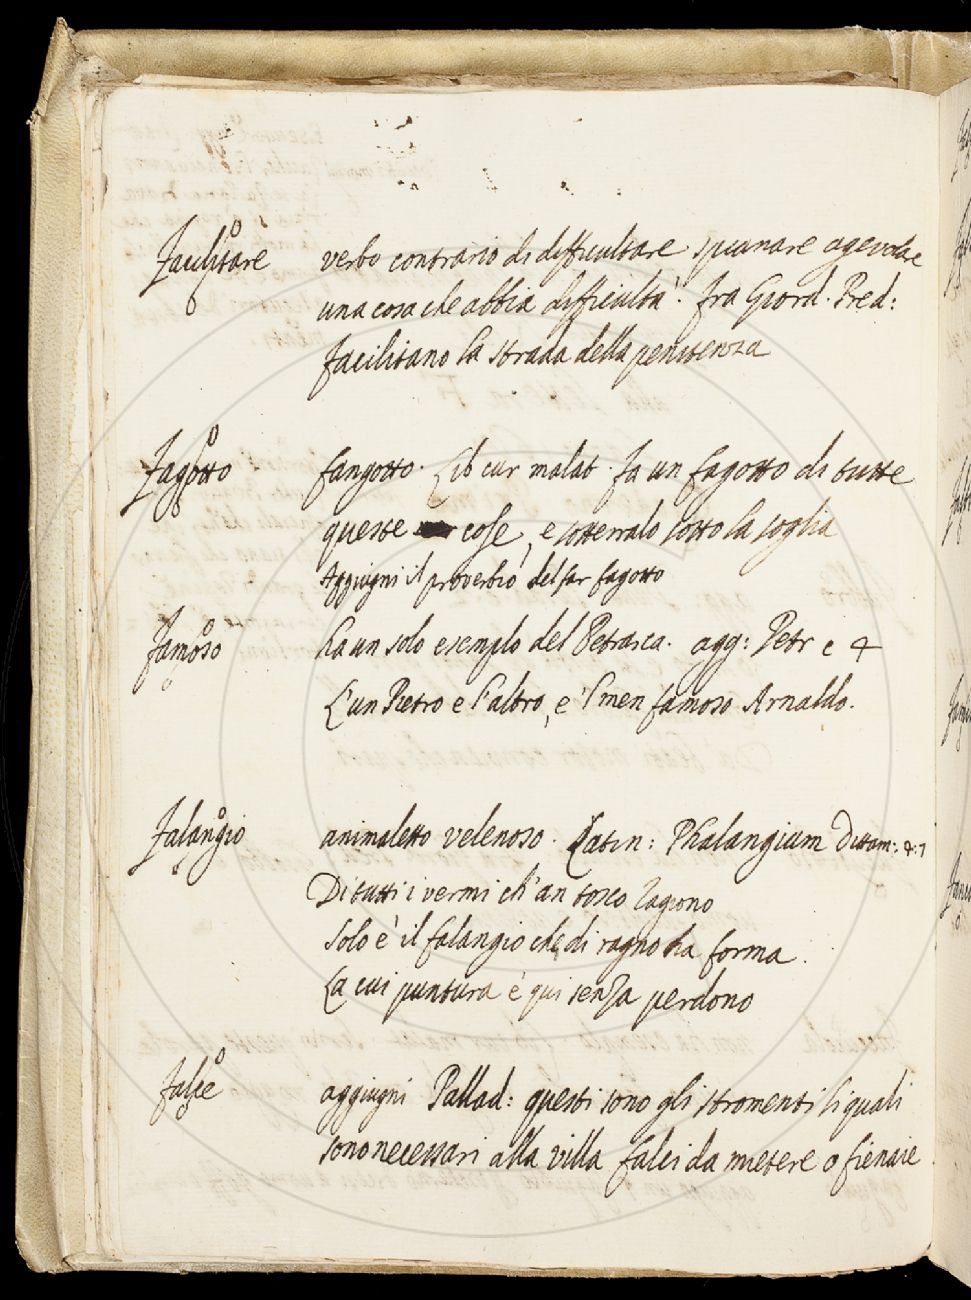 Facilitare verbo contrario di difficultare spianare agevolare
una cosa che abbia difficultà. fra Giord. Pred:
facilitano la strada della penitenza
Fagotto fangotto. Lib cur malat. fa un fagotto di tutte
queste cose, e sotterralo sotto la soglia
Aggiugni il proverbio del far fagotto
Famoso ha un solo esemplo del Petrarca. agg: Petr c 4
L'un Pietro e l'altro, e 'l men famoso Arnaldo.
Falangio animaletto velenoso. Latin: Phalangium Dittam: 4:7
Di tutti i vermi ch'an tosco
Solo è il falangio che di ragno ha forma.
La cui puntura è qui senza perdono
Falce aggiugni Pallad: questi sono gli stromenti li quali
sono necessari alla villa falci da mietere o fienaie